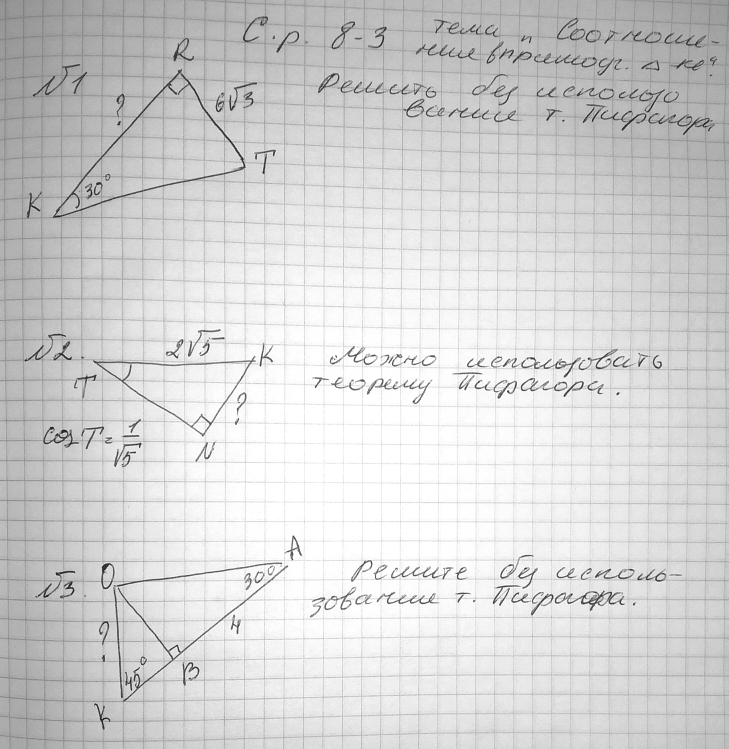 С.р. 8-3 тема „Соотноше-
ния в прямоуг. △ ке".
№1
R
?
6√3
Решить без использо
вания т. Пифагора
T
K
30°
№2.
2√5
K
T
?
Можно использовать
теорему Пифагора.
cos T = 1/√5
N
№3.
O
A
30°
Решите без исполь-
зования т. Пифагора.
?
4
B
45°
K